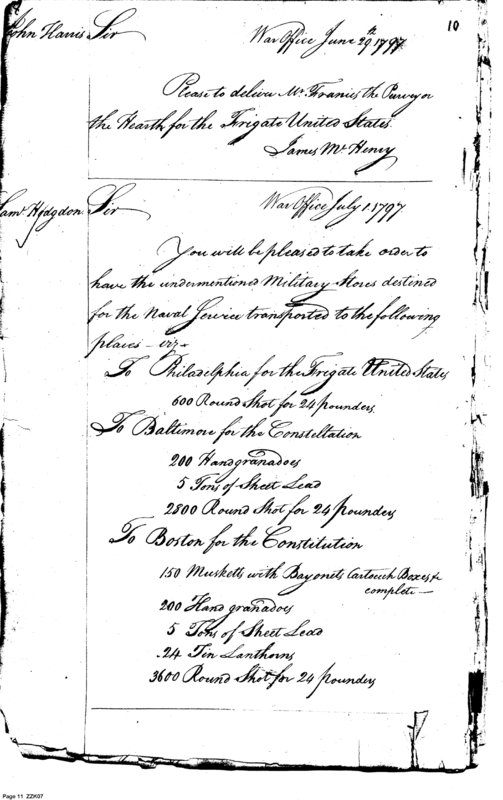 10
John Harris Sir War Office June 29th 1797
Please to deliver Mr. Francis the Purveyor
the Hearth for the Frigate United States.
James McHenry
Saml Hodgdon Sir War Office July 1. 1797
You will be pleased to take order to
have the undermentioned Military Stores destined
for the Naval Service transported to the following
places - viz -
To Philadelphia for the Frigate United States
600 Round Shot for 24 pounders
To Baltimore for the Constellation
200 Handgranadoes
5 Tons of Sheet Lead
2800 Round Shot for 24 pounders
To Boston for the Constitution
150 Musketts with Bayonets Cartouch Boxes &
complete -
200 Hand granadoes
5 Tons of Sheet Lead
24 Tin Lanthorns
3600 Round Shot for 24 pounders
Page 11 ZZK07